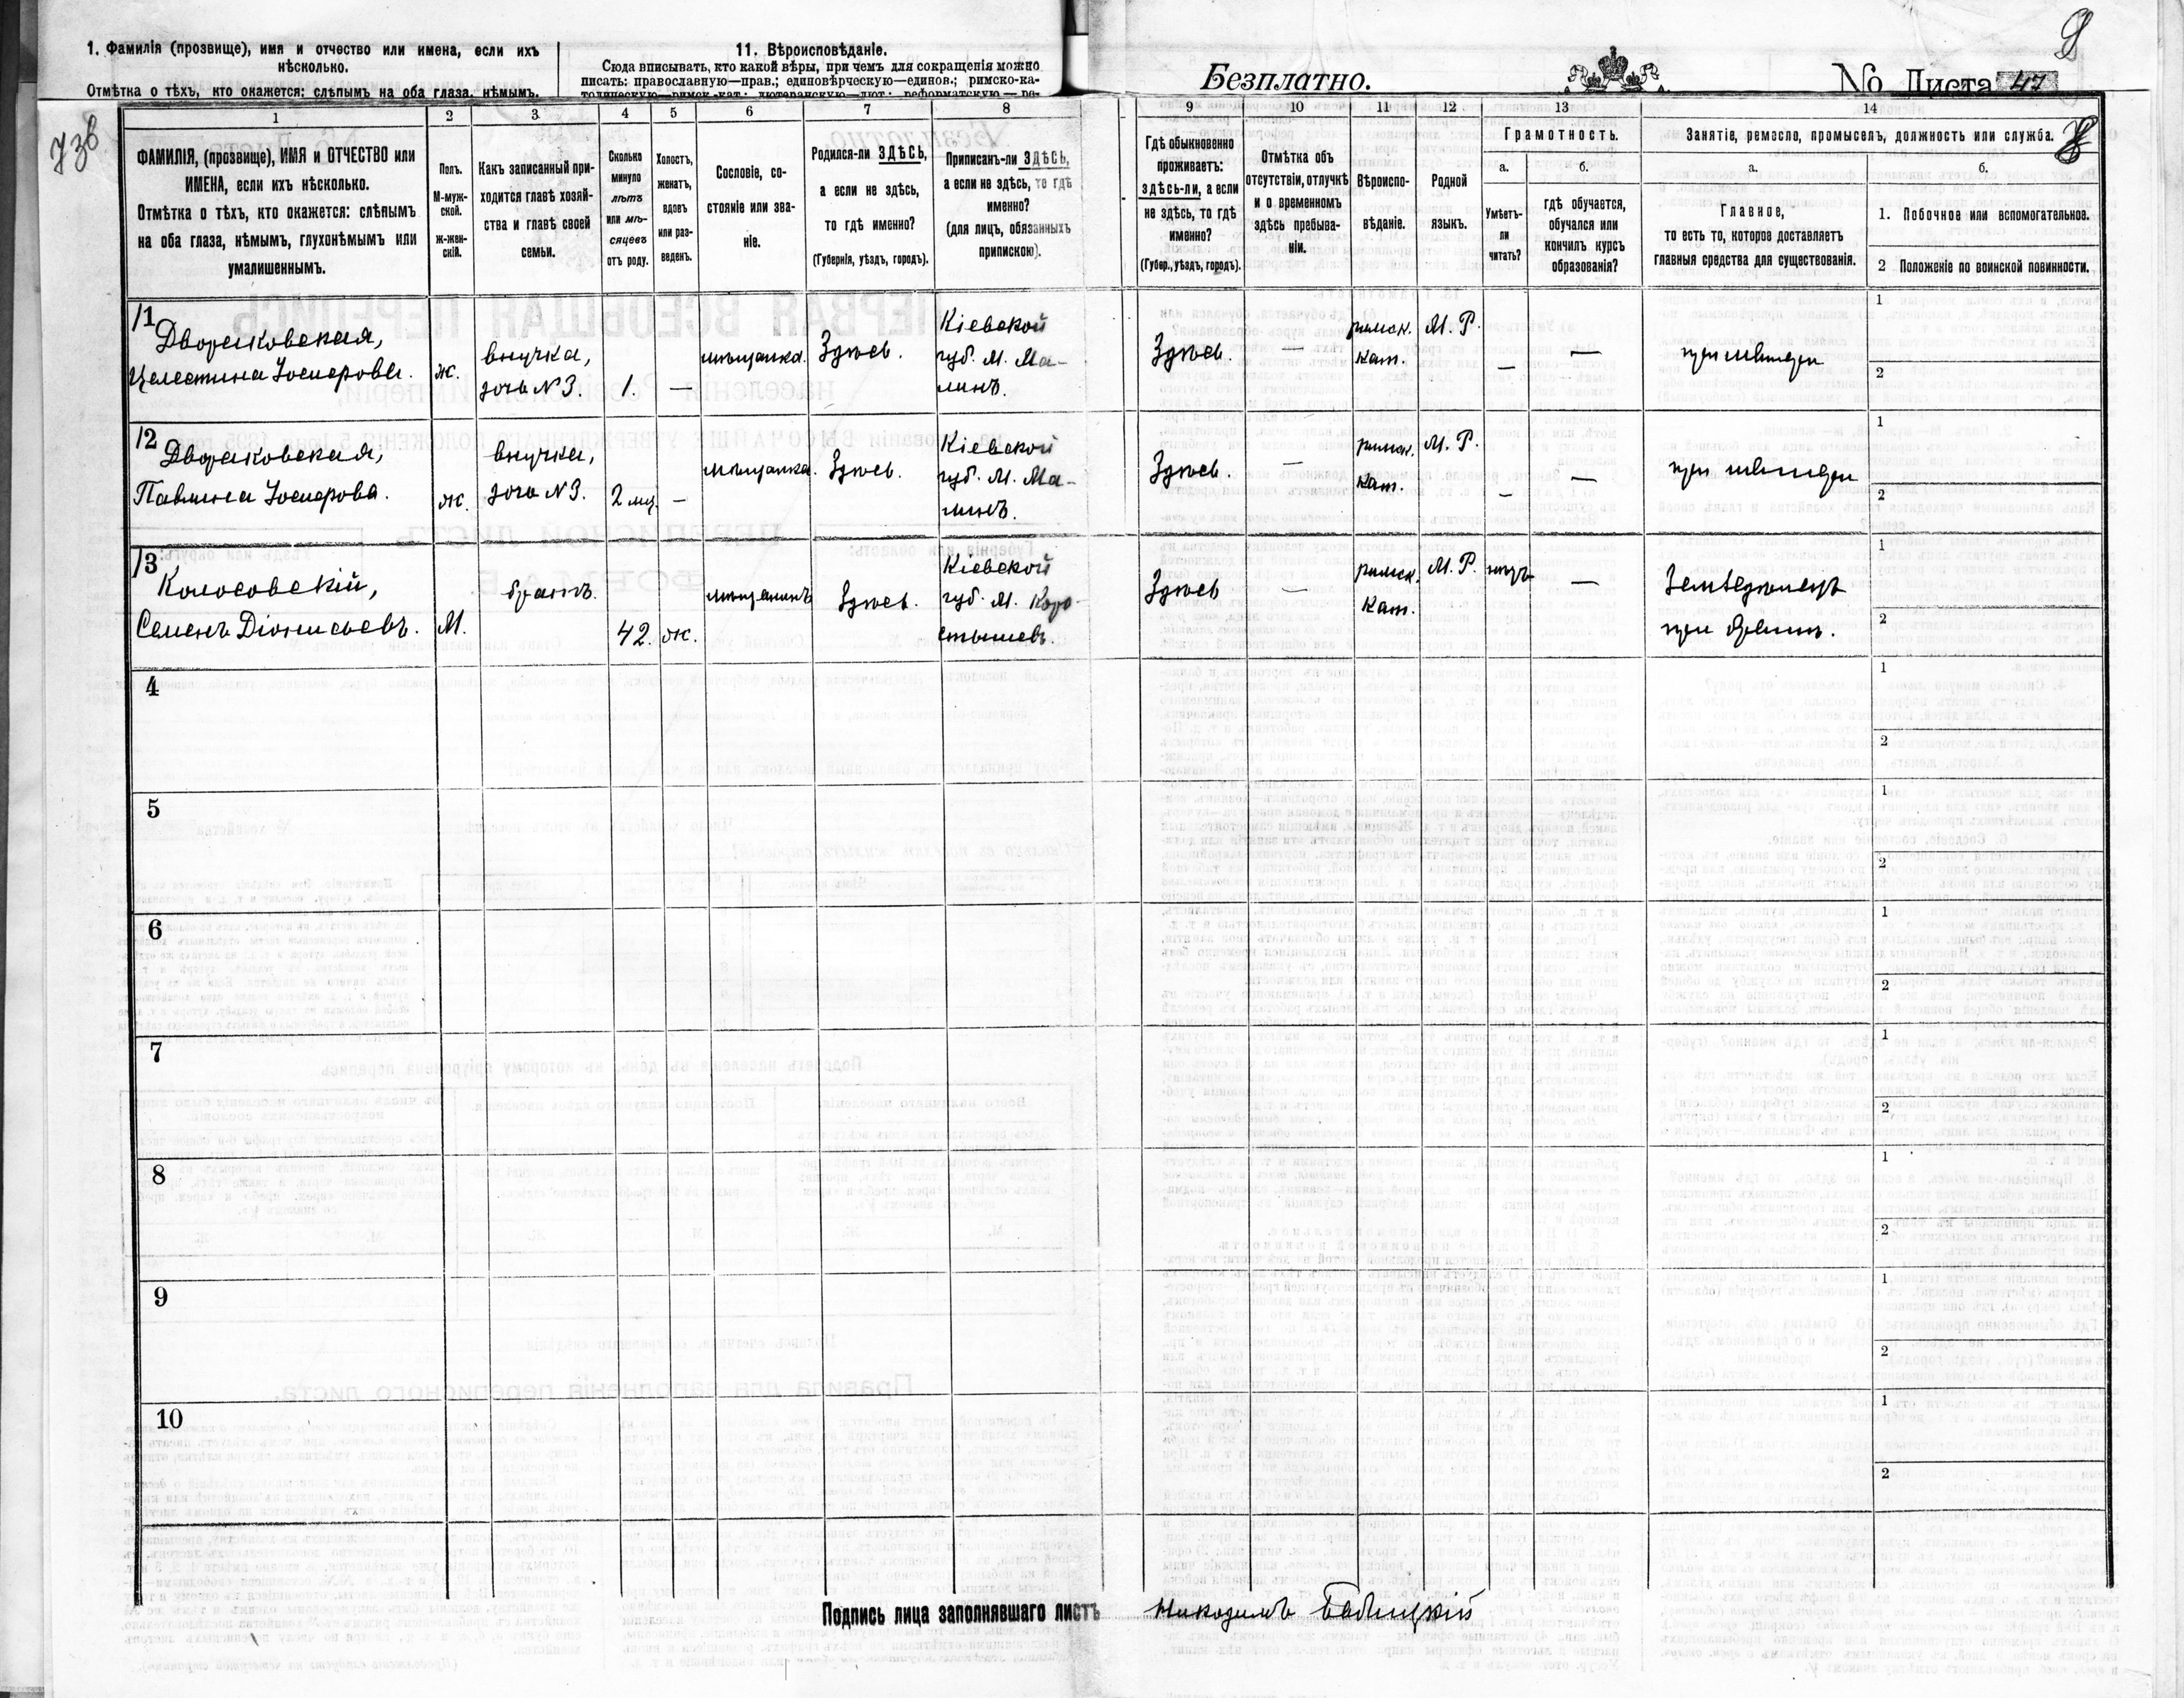 1. Фамилія (прозвище), имя и отчество или имена, если ихъ
нѣсколько.
Отмѣтка о тѣхъ, кто окажется: слѣпымъ на оба глаза, нѣмымъ,
11. Вѣроисповѣданіе.
Сюда вписывать, кто какой вѣры, при чемъ для сокращенія можно
писать: православную—прав.; единовѣрческую—единов.; римско-ка-
толическую—римск.-кат.; лютеранскую—лют.; реформатскую—ре-
Безплатно.
No Листа 47
73б
1 2 3 4 5 6 7 8 9 10 11 12 13 14
ФАМИЛІЯ, (прозвище), ИМЯ и ОТЧЕСТВО или
ИМЕНА, если ихъ нѣсколько.
Отмѣтка о тѣхъ, кто окажется: слѣпымъ
на оба глаза, нѣмымъ, глухонѣмымъ или
умалишеннымъ.
Полъ.
М-муж-
ской.
ж-жен-
скій.
Какъ записанный при-
ходится главѣ хозяй-
ства и главѣ своей
семьи.
Сколько
минуло
лѣтъ
или мѣ-
сяцевъ
отъ роду.
Холостъ,
женатъ,
вдовъ
или раз-
веденъ.
Сословіе, со-
стояніе или зва-
ніе.
Родился-ли ЗДѢСЬ,
а если не здѣсь,
то гдѣ именно?
(Губернія, уѣздъ, городъ).
Приписанъ-ли ЗДѢСЬ,
а если не здѣсь, то гдѣ
именно?
(для лицъ, обязанныхъ
припискою).
Гдѣ обыкновенно
проживаетъ:
здѣсь-ли, а если
не здѣсь, то гдѣ
именно?
(Губер., уѣздъ, городъ).
Отмѣтка объ
отсутствіи, отлучкѣ
и о временномъ
здѣсь пребыва-
ніи.
Вѣроиспо-
вѣданіе.
Родной
языкъ.
Грамотность.
а.
Умѣетъ-
ли
читать?
б.
гдѣ обучается,
обучался или
кончилъ курсъ
образованія?
Занятіе, ремесло, промыселъ, должность или служба.
а.
Главное,
то есть то, которое доставляетъ
главныя средства для существованія.
б.
1. Побочное или вспомогательное.
2 Положеніе по воинской повинности.
11
Двораковская,
Целестина Іосифова.
ж.
внучка,
дочь №3.
1.
—
мѣщанка.
Здѣсь.
Кіевской
губ. М. Ма-
линъ.
Здѣсь.
—
римск.
кат.
М. Р.
—
—
1
2
12
Двораковская,
Павлина Іосифова.
ж.
внучка,
дочь №3.
2 мц.
—
мѣщанка.
Здѣсь.
Кіевской
губ. М. Ма-
линъ.
Здѣсь.
—
римск.
кат.
М. Р.
—
—
1
2
13
Колосовскій,
Семенъ Діонисьевъ.
М.
братъ.
42.
ж.
мѣщанинъ
Здѣсь.
Кіевской
губ. М. Коро-
стышевъ.
Здѣсь
—
римск.
кат.
М. Р.
нѣтъ
—
Земледѣлецъ
1
2
4
1
2
5
1
2
6
1
2
7
1
2
8
1
2
9
1
2
10
1
2
Подпись лица заполнявшаго листъ